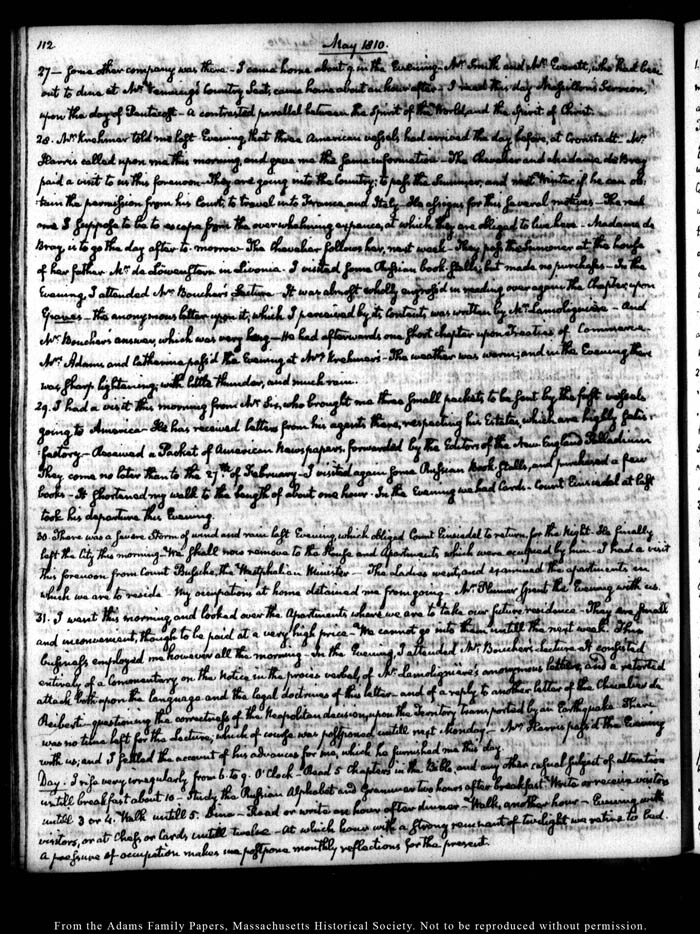 112
May 1810.
27— some other company was there. I came home about 9 in the Evening. Mr. Smith and Mr. Everett, who had been
out to dine at Mr. Country Seat, came home about an hour after. I read this day Massillon's Sermon,
upon the day of Pentecost. A contrasted parallel between the Spirit of the World, and the Spirit of Christ.
28. Mr. Krehmer told me last Evening, that three American vessels, had arrived the day before, at Cronstadt. Mr.
Harris called upon me this morning, and gave me the same information. The Chevalier and Madame de Bray
paid a visit to us this forenoon. They are going into the Country, to pass the Summer, and next Winter if he can ob-
tain the permission from his Court, to travel into France and Italy. He assigns for this several motives. The real
one I suppose to be to escape from the overwhelming expence, at which they are obliged to live here. Madame de
Bray, is to go the day after to-morrow. The Chevalier follows her, next week. They pass the Summer at the house
of her father Mr. de Löwenstern in Livonia. I visited some Russian book-stalls, but made no purchases. In the
Evening I attended Mr. Boucher's Lecture. It was almost wholly engross'd in reading over again the Chapter, upon
Epaves— the anonymous letter upon it, which I perceived by its contents, was written by Mr. Lamolignière— and
Mr. Boucher's answer, which was very long— He had afterwards one short chapter upon Treaties of Commerce.
Mrs. Adams and Catherine pass'd the Evening at Mrs. Krehmer's. The weather was warm; and in the Evening there
was sharp lightening, with little thunder, and much rain.
29. I had a visit this morning from Mr. Six, who brought me three small packets, to be sent by the first vessels
going to America. He has received letters from his agents there, respecting his Estates, which are highly satis-
factory. Received a Packet of American Newspapers, forwarded by the Editors of the New England Palladium.
They come no later than to the 27th. of February. I visited again some Russian Book-stalls, and purchased a few
books. It shortened my walk to the length of about one hour. In the Evening we had Cards. Count Einsiedel at last
took his departure this Evening.
30. There was a severe storm of wind and rain last Evening, which obliged Count Einsiedel to return, for the Night. He finally
left the City this morning. We shall now remove to the House and Apartments, which were occupied by him. I had a visit
this forenoon from Count Bussche, the Westphalian Minister— The ladies went, and examined the apartments in
which we are to reside. My occupations at home detained me from going. Mr. Plumer spent the Evening with us.
31. I went this morning, and looked over the Apartments where we are to take our future residence. They are small
and inconvenient, though to be paid at a very high price. We cannot go into them untill the next week. This
business employed me however all the morning. In the Evening, I attended Mr. Boucher's lecture. It consisted
entirely of a Commentary on the Notice in the process verbal, of Mr. Lamolignière's anonymous letters, and a retorted
attack both upon the language and the legal doctrines of this letter— and of a reply to another letter of the Chevalier de
Reibert— questioning the correctness of the Neapolitan decision, upon the Territory transported by an Earthquake. There
was no time left for the Lecture, which of course was postponed untill next Monday— Mr. Harris pass'd the Evening
with us; and I settled the account of his advances for me, which he furnished me this day.
Day. I rise very irregularly from 6 to 9 O'Clock— Read 5 Chapters in the Bible, and any other casual subject of attention
untill breakfast about 10— Study the Russian Alphabet and Grammar two hours after breakfast. Write or receive visitors
untill 3 or 4. Walk untill 5. Dine— Read or write an hour after dinner— Walk, another hour— Evening with
visitors, or at Chess or Cards untill twelve— At which hour with a strong remnant of twilight we retire to bed.
A pressure of occupation makes me postpone monthly reflections for the present.
From the Adams Family Papers, Massachusetts Historical Society. Not to be reproduced without permission.